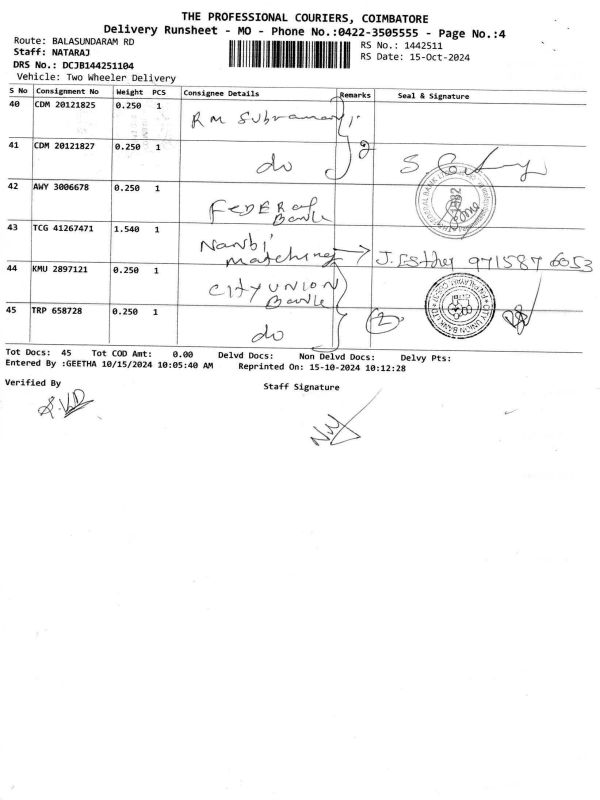 THE PROFESSIONAL COURIERS, COIMBATORE
Delivery Runsheet - MO - Phone No.:0422-3505555 - Page No.:4
Route: BALASUNDARAM RD
RS No.: 1442511
Staff: NATARAJ
RS Date: 15-Oct-2024
DRS No.: DCJB144251104
Vehicle: Two Wheeler Delivery
S No Consignment No Weight PCS Consignee Details Remarks Seal & Signature
40 CDM 20121825 0.250 1 RM Subramany
41 CDM 20121827 0.250 1 do 2
42 AWY 3006678 0.250 1 FEDERal Bank
43 TCG 41267471 1.540 1 Nambi matching J. Esther 971587 6053
44 KMU 2897121 0.250 1 CITY UNION Bank
45 TRP 658728 0.250 1 do 2
Tot Docs: 45 Tot COD Amt: 0.00 Delvd Docs: Non Delvd Docs: Delvy Pts:
Entered By :GEETHA 10/15/2024 10:05:40 AM Reprinted On: 15-10-2024 10:12:28
Verified By
Staff Signature